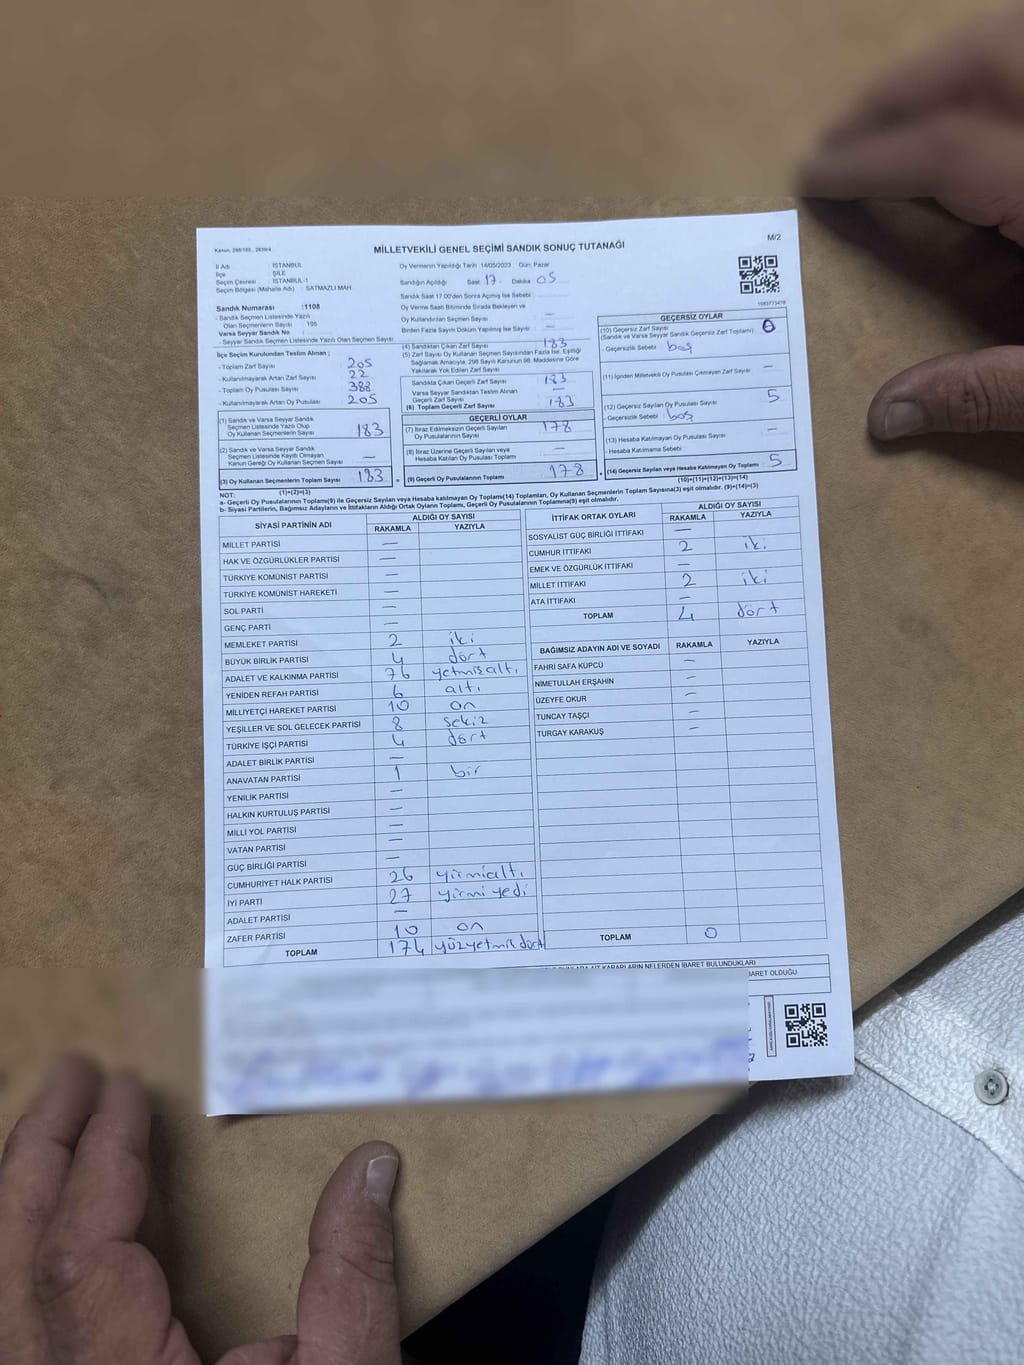 Kanun: 298/105 , 2839/4
MİLLETVEKİLİ GENEL SEÇİMİ SANDIK SONUÇ TUTANAĞI
M/2
İl Adı : İSTANBUL
İlçe : ŞİLE
Seçim Çevresi : İSTANBUL-1
Seçim Bölgesi (Mahalle Adı) : SATMAZLI MAH.
Oy Vermenin Yapıldığı Tarih: 14/05/2023 Gün: Pazar
Sandığın Açıldığı Saat 17 Dakika 05
Sandık Saat 17:00'den Sonra Açılmış İse Sebebi
Oy Verme Saati Bitiminde Sırada Bekleyen ve
Oy Kullandırılan Seçmen Sayısı —
Birden Fazla Sayılı Döküm Yapılmış İse Sayısı —
Sandık Numarası :1108
- Sandık Seçmen Listesinde Yazılı
Olan Seçmenlerin Sayısı : 195
Varsa Seyyar Sandık No
- Seyyar Sandık Seçmen Listesinde Yazılı Olan Seçmen Sayısı
İlçe Seçim Kurulundan Teslim Alınan ;
- Toplam Zarf Sayısı 205
- Kullanılmayarak Artan Zarf Sayısı 22
- Toplam Oy Pusulası Sayısı 388
- Kullanılmayarak Artan Oy Pusulası 205
(1) Sandık ve Varsa Seyyar Sandık
Seçmen Listesinde Yazılı Olup
Oy Kullanan Seçmenlerin Sayısı 183
(2) Sandık ve Varsa Seyyar Sandık
Seçmen Listesinde Kayıtlı Olmayan
Kanun Gereği Oy Kullanan Seçmen Sayısı —
(3) Oy Kullanan Seçmenlerin Toplam Sayısı 183
(1)+(2)=(3)
(4) Sandıktan Çıkan Zarf Sayısı 183
(5) Zarf Sayısı Oy Kullanan Seçmen Sayısından Fazla İse, Eşitliği
Sağlamak Amacıyla, 298 Sayılı Kanunun 98. Maddesine Göre
Yakılarak Yok Edilen Zarf Sayısı
Sandıkta Çıkan Geçerli Zarf Sayısı 183
Varsa Seyyar Sandıktan Teslim Alınan
Geçerli Zarf Sayısı —
(6) Toplam Geçerli Zarf Sayısı 183
GEÇERLİ OYLAR
(7) İtiraz Edilmeksizin Geçerli Sayılan
Oy Pusulalarının Sayısı 178
(8) İtiraz Üzerine Geçerli Sayılan veya
Hesaba Katılan Oy Pusulası Toplamı —
(9) Geçerli Oy Pusulalarının Toplamı 178
GEÇERSİZ OYLAR
(10) Geçersiz Zarf Sayısı
(Sandık ve Varsa Seyyar Sandık Geçersiz Zarf Toplamı) 0
- Geçersizlik Sebebi boş
(11) İçinden Milletvekili Oy Pusulası Çıkmayan Zarf Sayısı —
(12) Geçersiz Sayılan Oy Pusulası Sayısı 5
- Geçersizlik Sebebi boş
(13) Hesaba Katılmayan Oy Pusulası Sayısı —
- Hesaba Katılmama Sebebi
(14) Geçersiz Sayılan veya Hesaba Katılmayan Oy Toplamı 5
(10)+(11)+(12)+(13)=(14)
NOT:
a- Geçerli Oy Pusulalarının Toplamı(9) ile Geçersiz Sayılan veya Hesaba katılmayan Oy Toplamı(14) Toplamları, Oy Kullanan Seçmenlerin Toplam Sayısına(3) eşit olmalıdır. (9)+(14)=(3)
b- Siyasi Partilerin, Bağımsız Adayların ve İttifakların Aldığı Ortak Oyların Toplamı, Geçerli Oy Pusulalarının Toplamına(9) eşit olmalıdır.
SİYASİ PARTİNİN ADI ALDIĞI OY SAYISI
RAKAMLA YAZIYLA
MİLLET PARTİSİ —
HAK VE ÖZGÜRLÜKLER PARTİSİ —
TÜRKİYE KOMÜNİST PARTİSİ —
TÜRKİYE KOMÜNİST HAREKETİ —
SOL PARTİ —
GENÇ PARTİ —
MEMLEKET PARTİSİ 2 iki
BÜYÜK BİRLİK PARTİSİ 4 dört
ADALET VE KALKINMA PARTİSİ 76 yetmişaltı
YENİDEN REFAH PARTİSİ 6 altı
MİLLİYETÇİ HAREKET PARTİSİ 10 on
YEŞİLLER VE SOL GELECEK PARTİSİ 8 sekiz
TÜRKİYE İŞÇİ PARTİSİ 4 dört
ADALET BİRLİK PARTİSİ —
ANAVATAN PARTİSİ 1 bir
YENİLİK PARTİSİ —
HALKIN KURTULUŞ PARTİSİ —
MİLLİ YOL PARTİSİ —
VATAN PARTİSİ —
GÜÇ BİRLİĞİ PARTİSİ —
CUMHURİYET HALK PARTİSİ 26 yirmialtı
İYİ PARTİ 27 yirmiyedi
ADALET PARTİSİ —
ZAFER PARTİSİ 10 on
TOPLAM 174 yüzyetmişdört
İTTİFAK ORTAK OYLARI ALDIĞI OY SAYISI
RAKAMLA YAZIYLA
SOSYALİST GÜÇ BİRLİĞİ İTTİFAKI —
CUMHUR İTTİFAKI 2 iki
EMEK VE ÖZGÜRLÜK İTTİFAKI —
MİLLET İTTİFAKI 2 iki
ATA İTTİFAKI —
TOPLAM 4 dört
BAĞIMSIZ ADAYIN ADI VE SOYADI RAKAMLA YAZIYLA
FAHRİ SAFA KÜPCÜ —
NİMETULLAH ERŞAHİN —
ÜZEYFE OKUR —
TUNCAY TAŞÇI —
TURGAY KARAKUŞ —
TOPLAM 0
KARARLARIN NELERDEN İBARET BULUNDUKLARI
BARET OLDUĞU